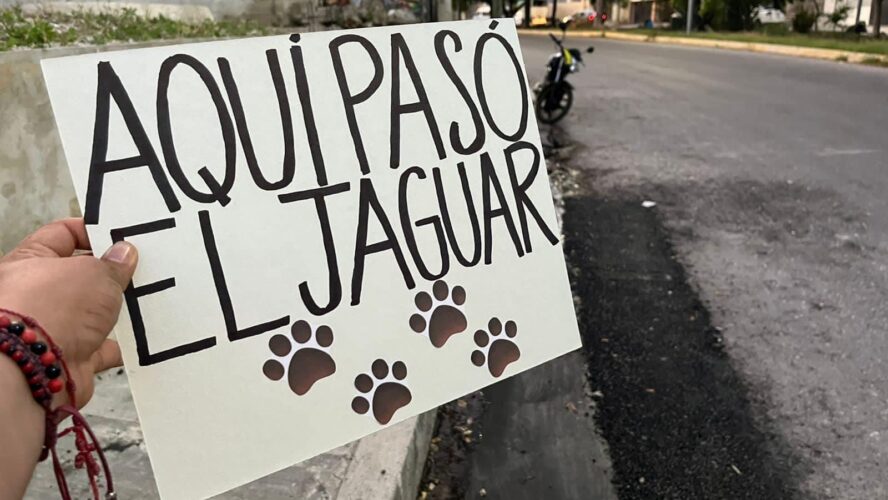 AQUÍ PASÓ
EL JAGUAR